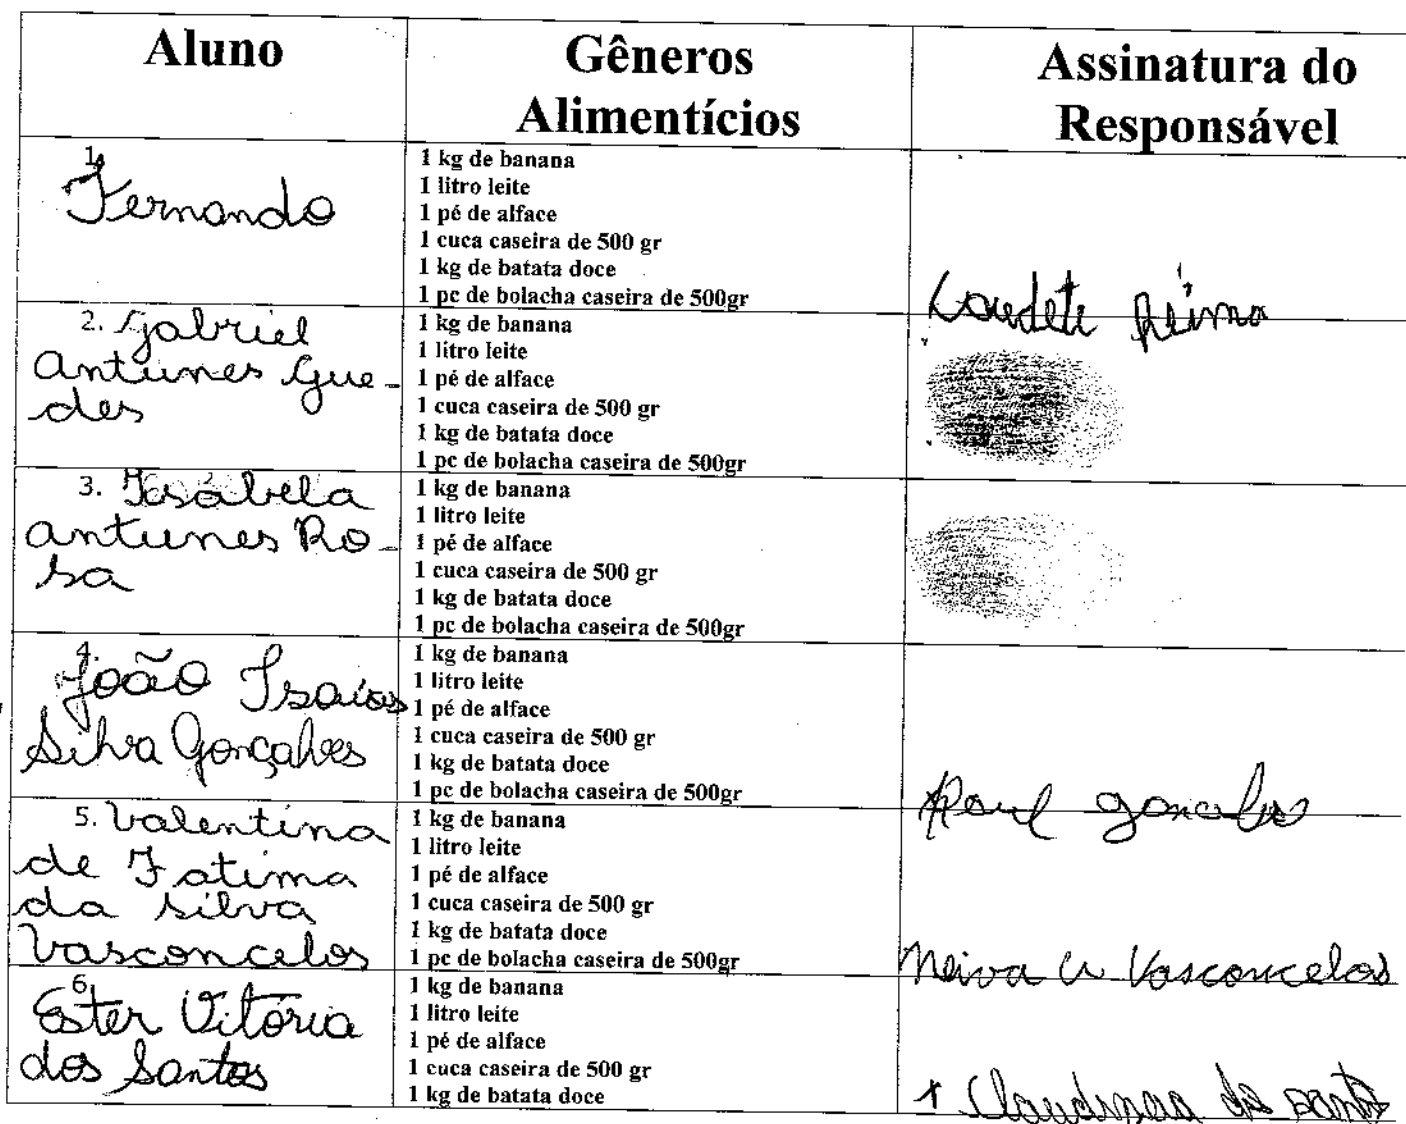 Aluno
Gêneros
Alimentícios
Assinatura do
Responsável
1.
Fernando
1 kg de banana
1 litro leite
1 pé de alface
1 cuca caseira de 500 gr
1 kg de batata doce
1 pc de bolacha caseira de 500gr
2. Gabriel
Antunes Gue-
des
1 kg de banana
1 litro leite
1 pé de alface
1 cuca caseira de 500 gr
1 kg de batata doce
1 pc de bolacha caseira de 500gr
3. Isabela
Antunes Ro-
sa
1 kg de banana
1 litro leite
1 pé de alface
1 cuca caseira de 500 gr
1 kg de batata doce
1 pc de bolacha caseira de 500gr
4.
João Isaias
Silva Gonçalves
1 kg de banana
1 litro leite
1 pé de alface
1 cuca caseira de 500 gr
1 kg de batata doce
1 pc de bolacha caseira de 500gr
5. Valentina
de Fatima
da Silva
Vasconcelos
1 kg de banana
1 litro leite
1 pé de alface
1 cuca caseira de 500 gr
1 kg de batata doce
1 pc de bolacha caseira de 500gr
Neiva Vasconcelos
6.
Ester Vitória
dos Santos
1 kg de banana
1 litro leite
1 pé de alface
1 cuca caseira de 500 gr
1 kg de batata doce